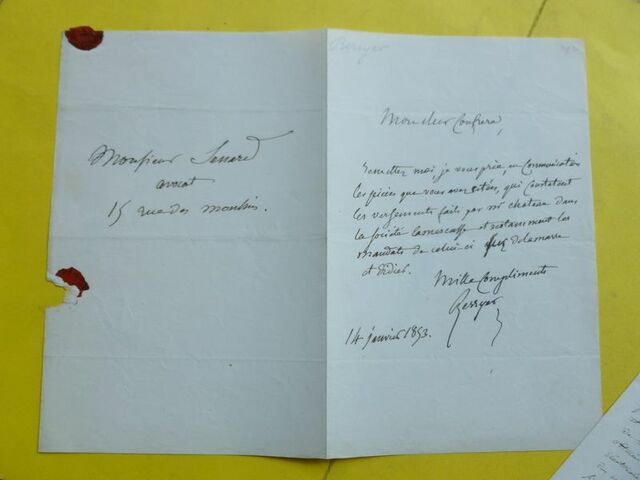 Monsieur Senard
avocat
15 rue des moulins.
Berryer
Mon cher Confrere,
Remettez moi, je vous prie, en Communication
les pièces que vous avez citées, qui Constatent
les versements faits par mr chateau dans
la Société et notamment les
mandats de celui-ci sur Delamarre
et Didier.
Mille Compliments
Berryer
14 janvier 1853.